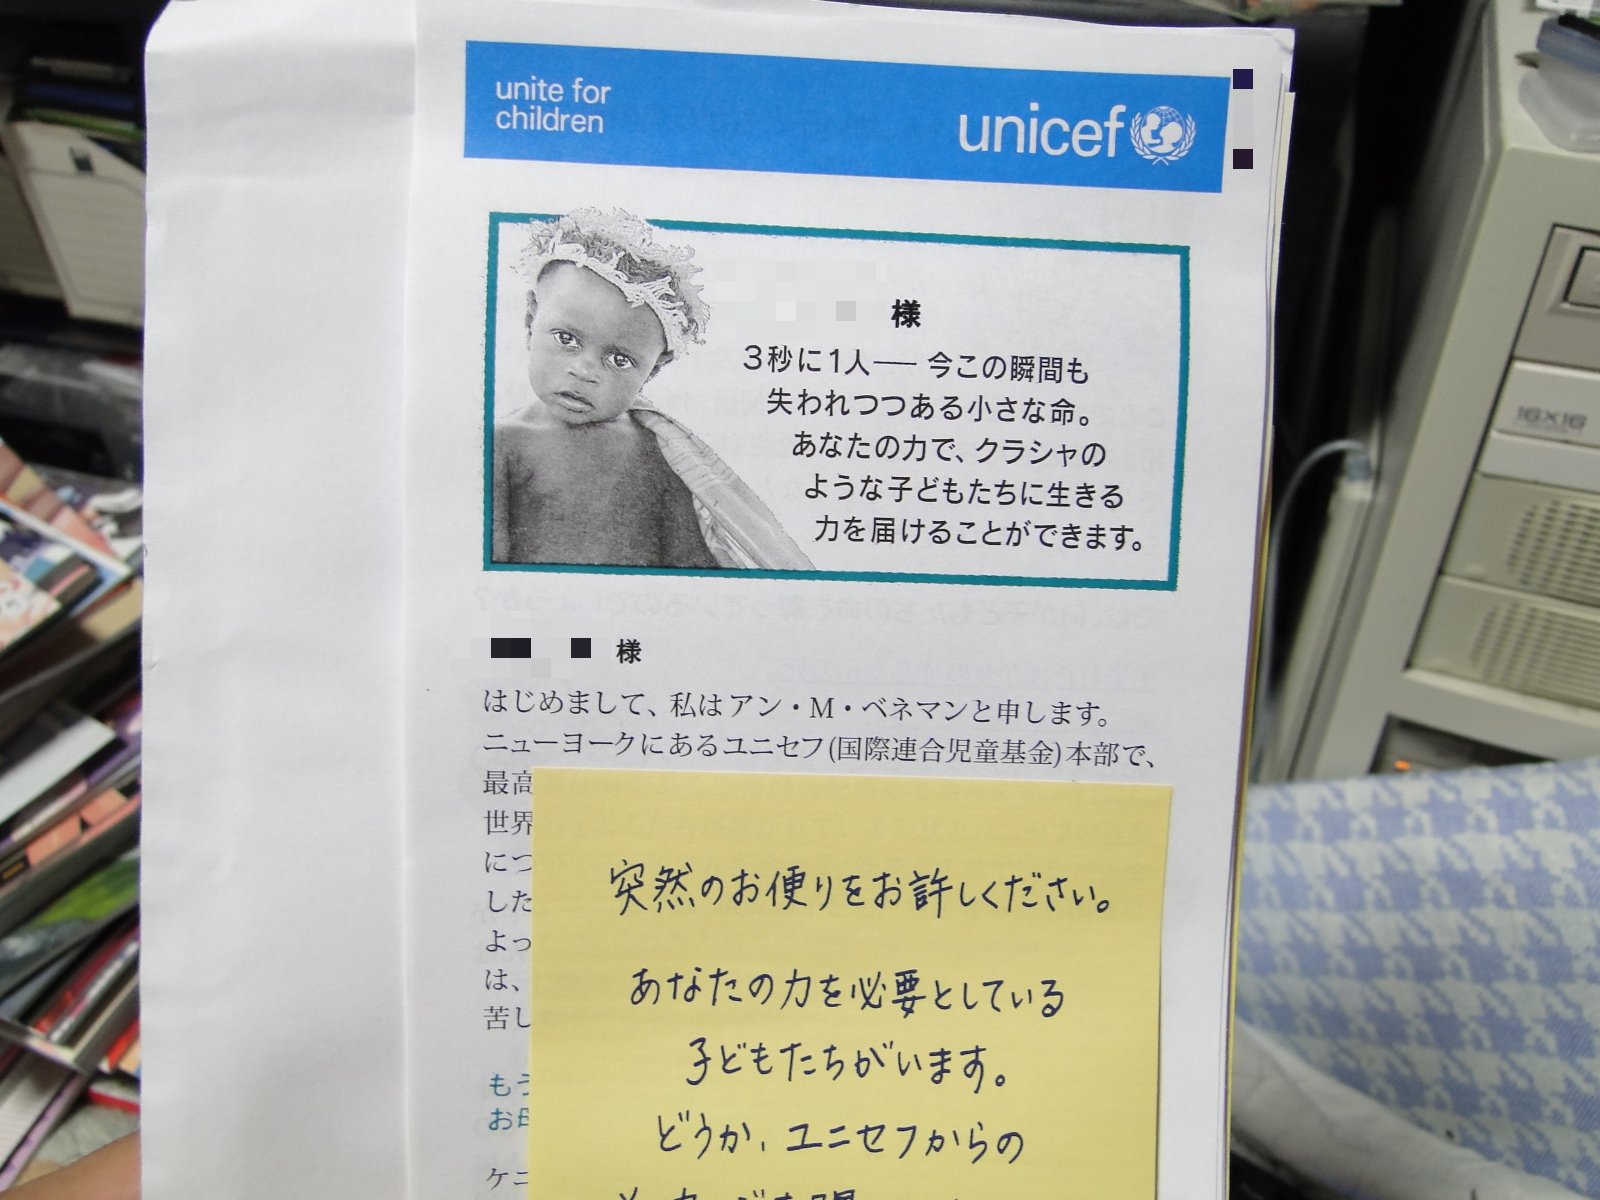 unite for
children
unicef
様
3秒に1人── 今この瞬間も
失われつつある小さな命。
あなたの力で、クラシャの
ような子どもたちに生きる
力を届けることができます。
様
はじめまして、私はアン・M・ベネマンと申します。
ニューヨークにあるユニセフ(国際連合児童基金)本部で、
最高
世界
につ
した
よっ
は、
苦し
もう
お母
ケニ
突然のお便りをお許しください。
あなたの力を必要としている
子どもたちがいます。
どうか、ユニセフからの
16X16